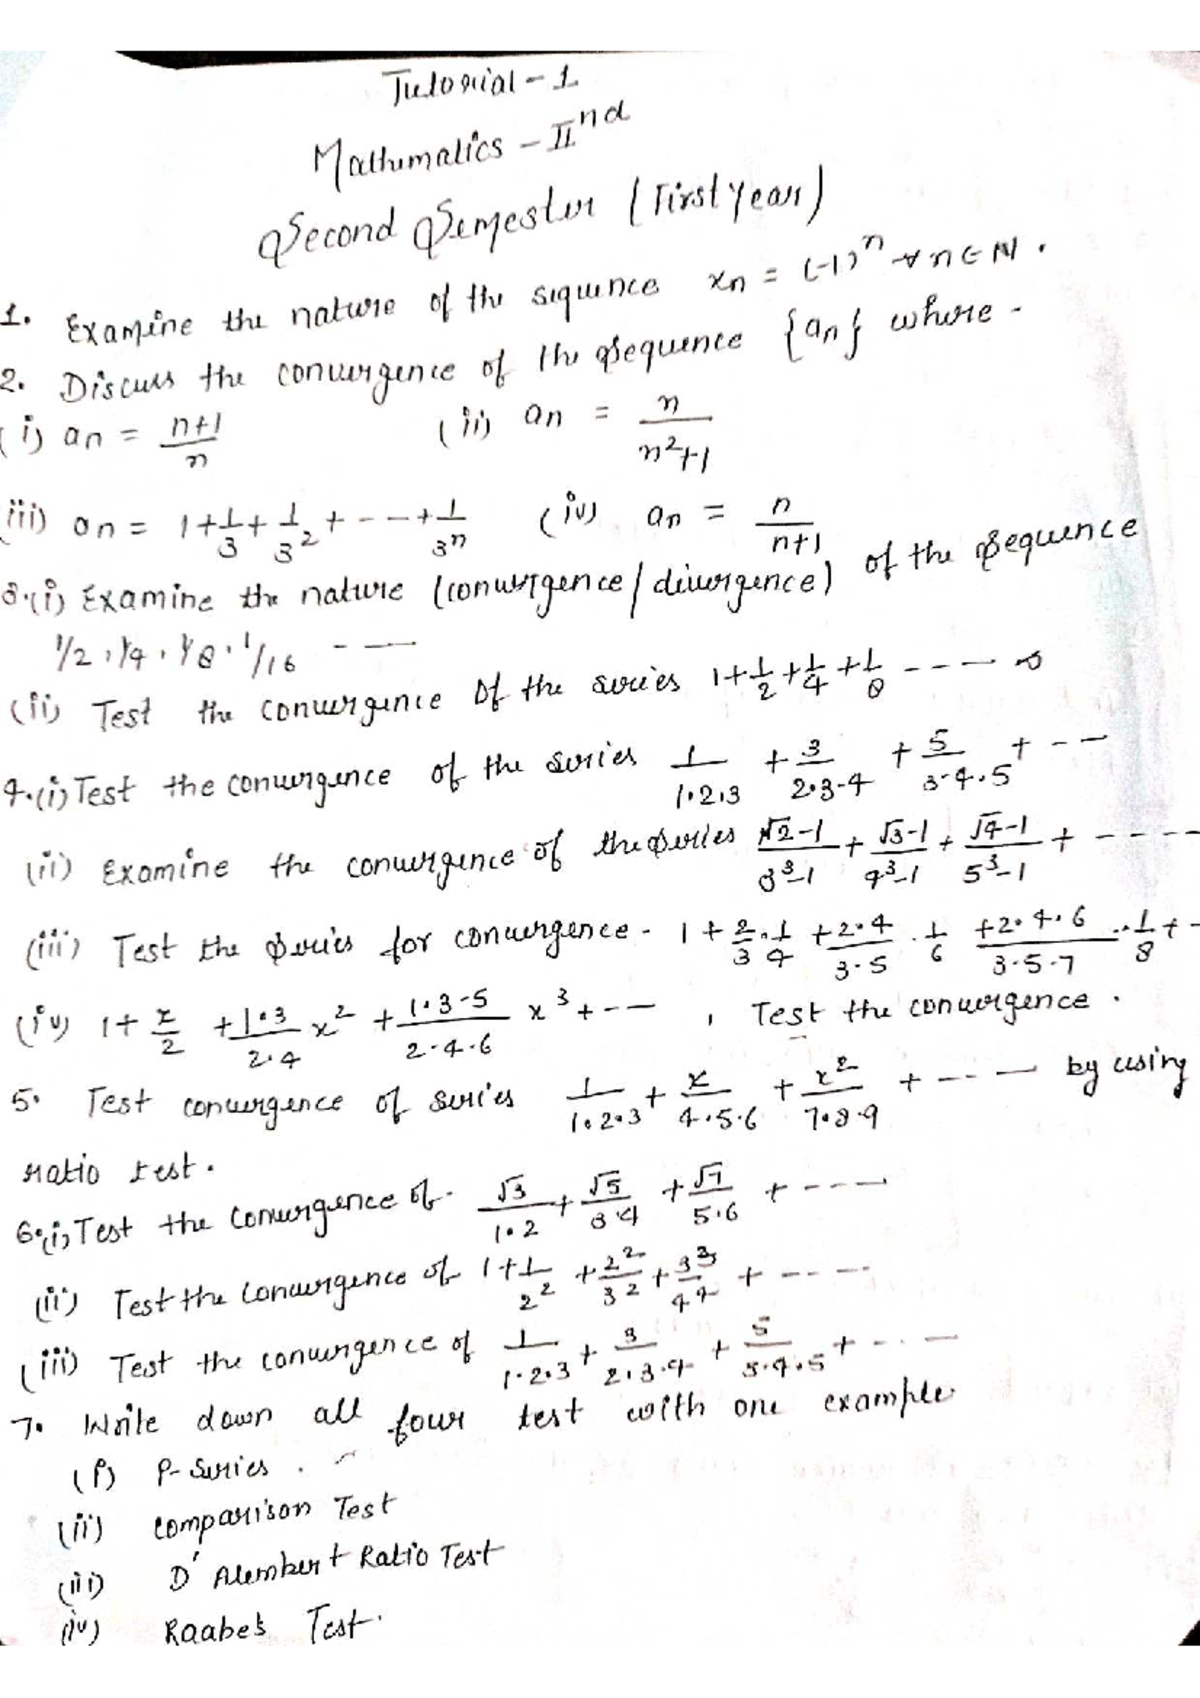 Tutorial - 1
Mathematics - IInd
Second Semester (First Year)
1. Examine the nature of the sequence xn = (-1)^n ∀ n ∈ N.
2. Discuss the convergence of the sequence {an} where -
(i) an = (n+1)/n (ii) an = n/(n²+1)
(iii) an = 1 + 1/3 + 1/3² + - - - + 1/3^n (iv) an = n/(n+1)
3.(i) Examine the nature (convergence/divergence) of the sequence
1/2, 1/4, 1/8, 1/16 - - -
(ii) Test the convergence of the series 1 + 1/2 + 1/4 + 1/8 - - - - ∞
4.(i) Test the convergence of the series 1/1·2·3 + 3/2·3·4 + 5/3·4·5 + - -
(ii) Examine the convergence of the series (√2-1)/(3³-1) + (√3-1)/(4³-1) + (√4-1)/(5³-1) + - - - -
(iii) Test the series for convergence - 1 + 2/3 · 1/4 + 2·4/3·5 · 1/6 + 2·4·6/3·5·7 · 1/8 + -
(iv) 1 + x/2 + 1·3/2·4 x² + 1·3·5/2·4·6 x³ + - - , Test the convergence.
5. Test convergence of series 1/1·2·3 + x/4·5·6 + x²/7·8·9 + - - - by using
ratio test.
6.(i) Test the convergence of. √3/1·2 + √5/3·4 + √7/5·6 + - - - -
(ii) Test the convergence of 1 + 1/2² + 2²/3² + 3³/4⁴ + - - - -
(iii) Test the convergence of 1/1·2·3 + 3/2·3·4 + 5/3·4·5 + - - -
7. Write down all four test with one example
(i) P-Series.
(ii) Comparison Test
(iii) D' Alembert Ratio Test
(iv) Raabe's Test.